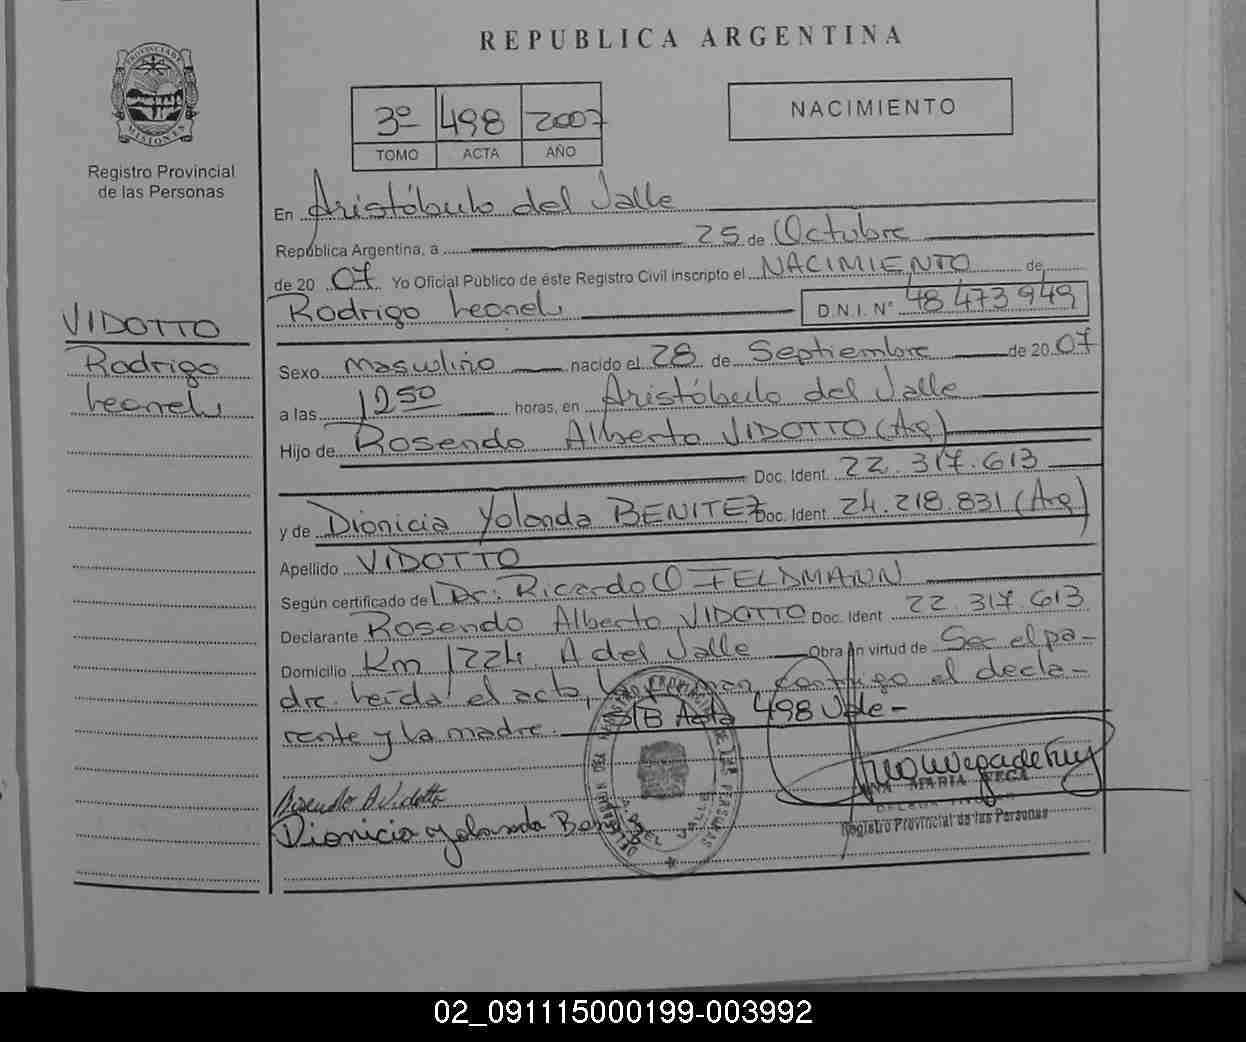 REPUBLICA ARGENTINA
PROVINCIA DE
MISIONES
Registro Provincial
de las Personas
3º 498 2007
TOMO ACTA AÑO
NACIMIENTO
En Aristóbulo del Valle
República Argentina, a 25 de Octubre
de 20 07 Yo Oficial Público de éste Registro Civil inscripto el NACIMIENTO de
Rodrigo Leonel D.N.I. Nº 48 473 949
VIDOTTO
Rodrigo
Leonel
Sexo masculino nacido el 28 de Septiembre de 20 07
a las 12 50 horas, en Aristóbulo del Valle
Hijo de Rosendo Alberto VIDOTTO (Arg)
Doc. Ident. 22.317.613
y de Dionicia Yolanda BENITEZ Doc. Ident. 24.218.831 (Arg)
Apellido VIDOTTO
Según certificado de Dr: Ricardo O FELDMANN
Declarante Rosendo Alberto VIDOTTO Doc. Ident 22.317.613
Domicilio Km 1224. A del Valle Obra en virtud de Ser el pa-
dre. Leída el acta, conmigo el decla-
rante y la madre. S/B Acta 498 Vale-
Rosendo A Vidotto
Dionicia Yolanda
ANA MARIA VEGA
Registro Provincial de las Personas
02_091115000199-003992